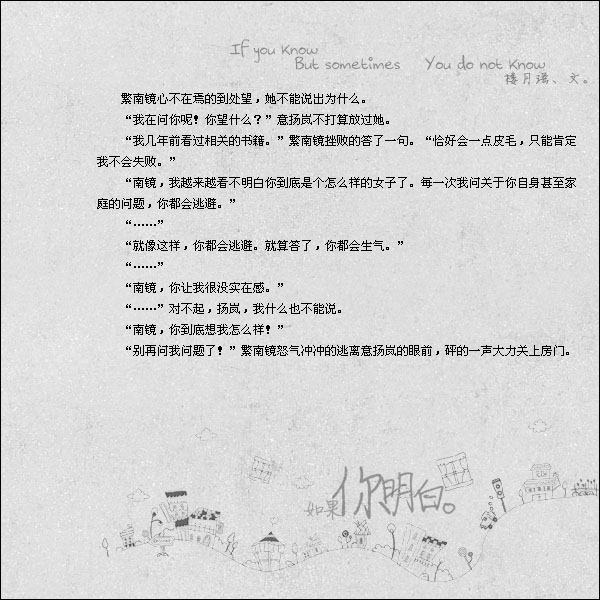 If you know
But sometimes You do not know
楼月瑶、文。
繁南镜心不在焉的到处望，她不能说出为什么。
“我在问你呢！你望什么？”意扬岚不打算放过她。
“我几年前看过相关的书籍。”繁南镜挫败的答了一句。“恰好会一点皮毛，只能肯定
我不会失败。”
“南镜，我越来越看不明白你到底是个怎么样的女子了。每一次我问关于你自身甚至家
庭的问题，你都会逃避。”
“……”
“就像这样，你都会逃避。就算答了，你都会生气。”
“……”
“南镜，你让我很没实在感。”
“……”对不起，扬岚，我什么也不能说。
“南镜，你到底想我怎么样！”
“别再问我问题了！”繁南镜怒气冲冲的逃离意扬岚的眼前，砰的一声大力关上房门。
如果你明白。